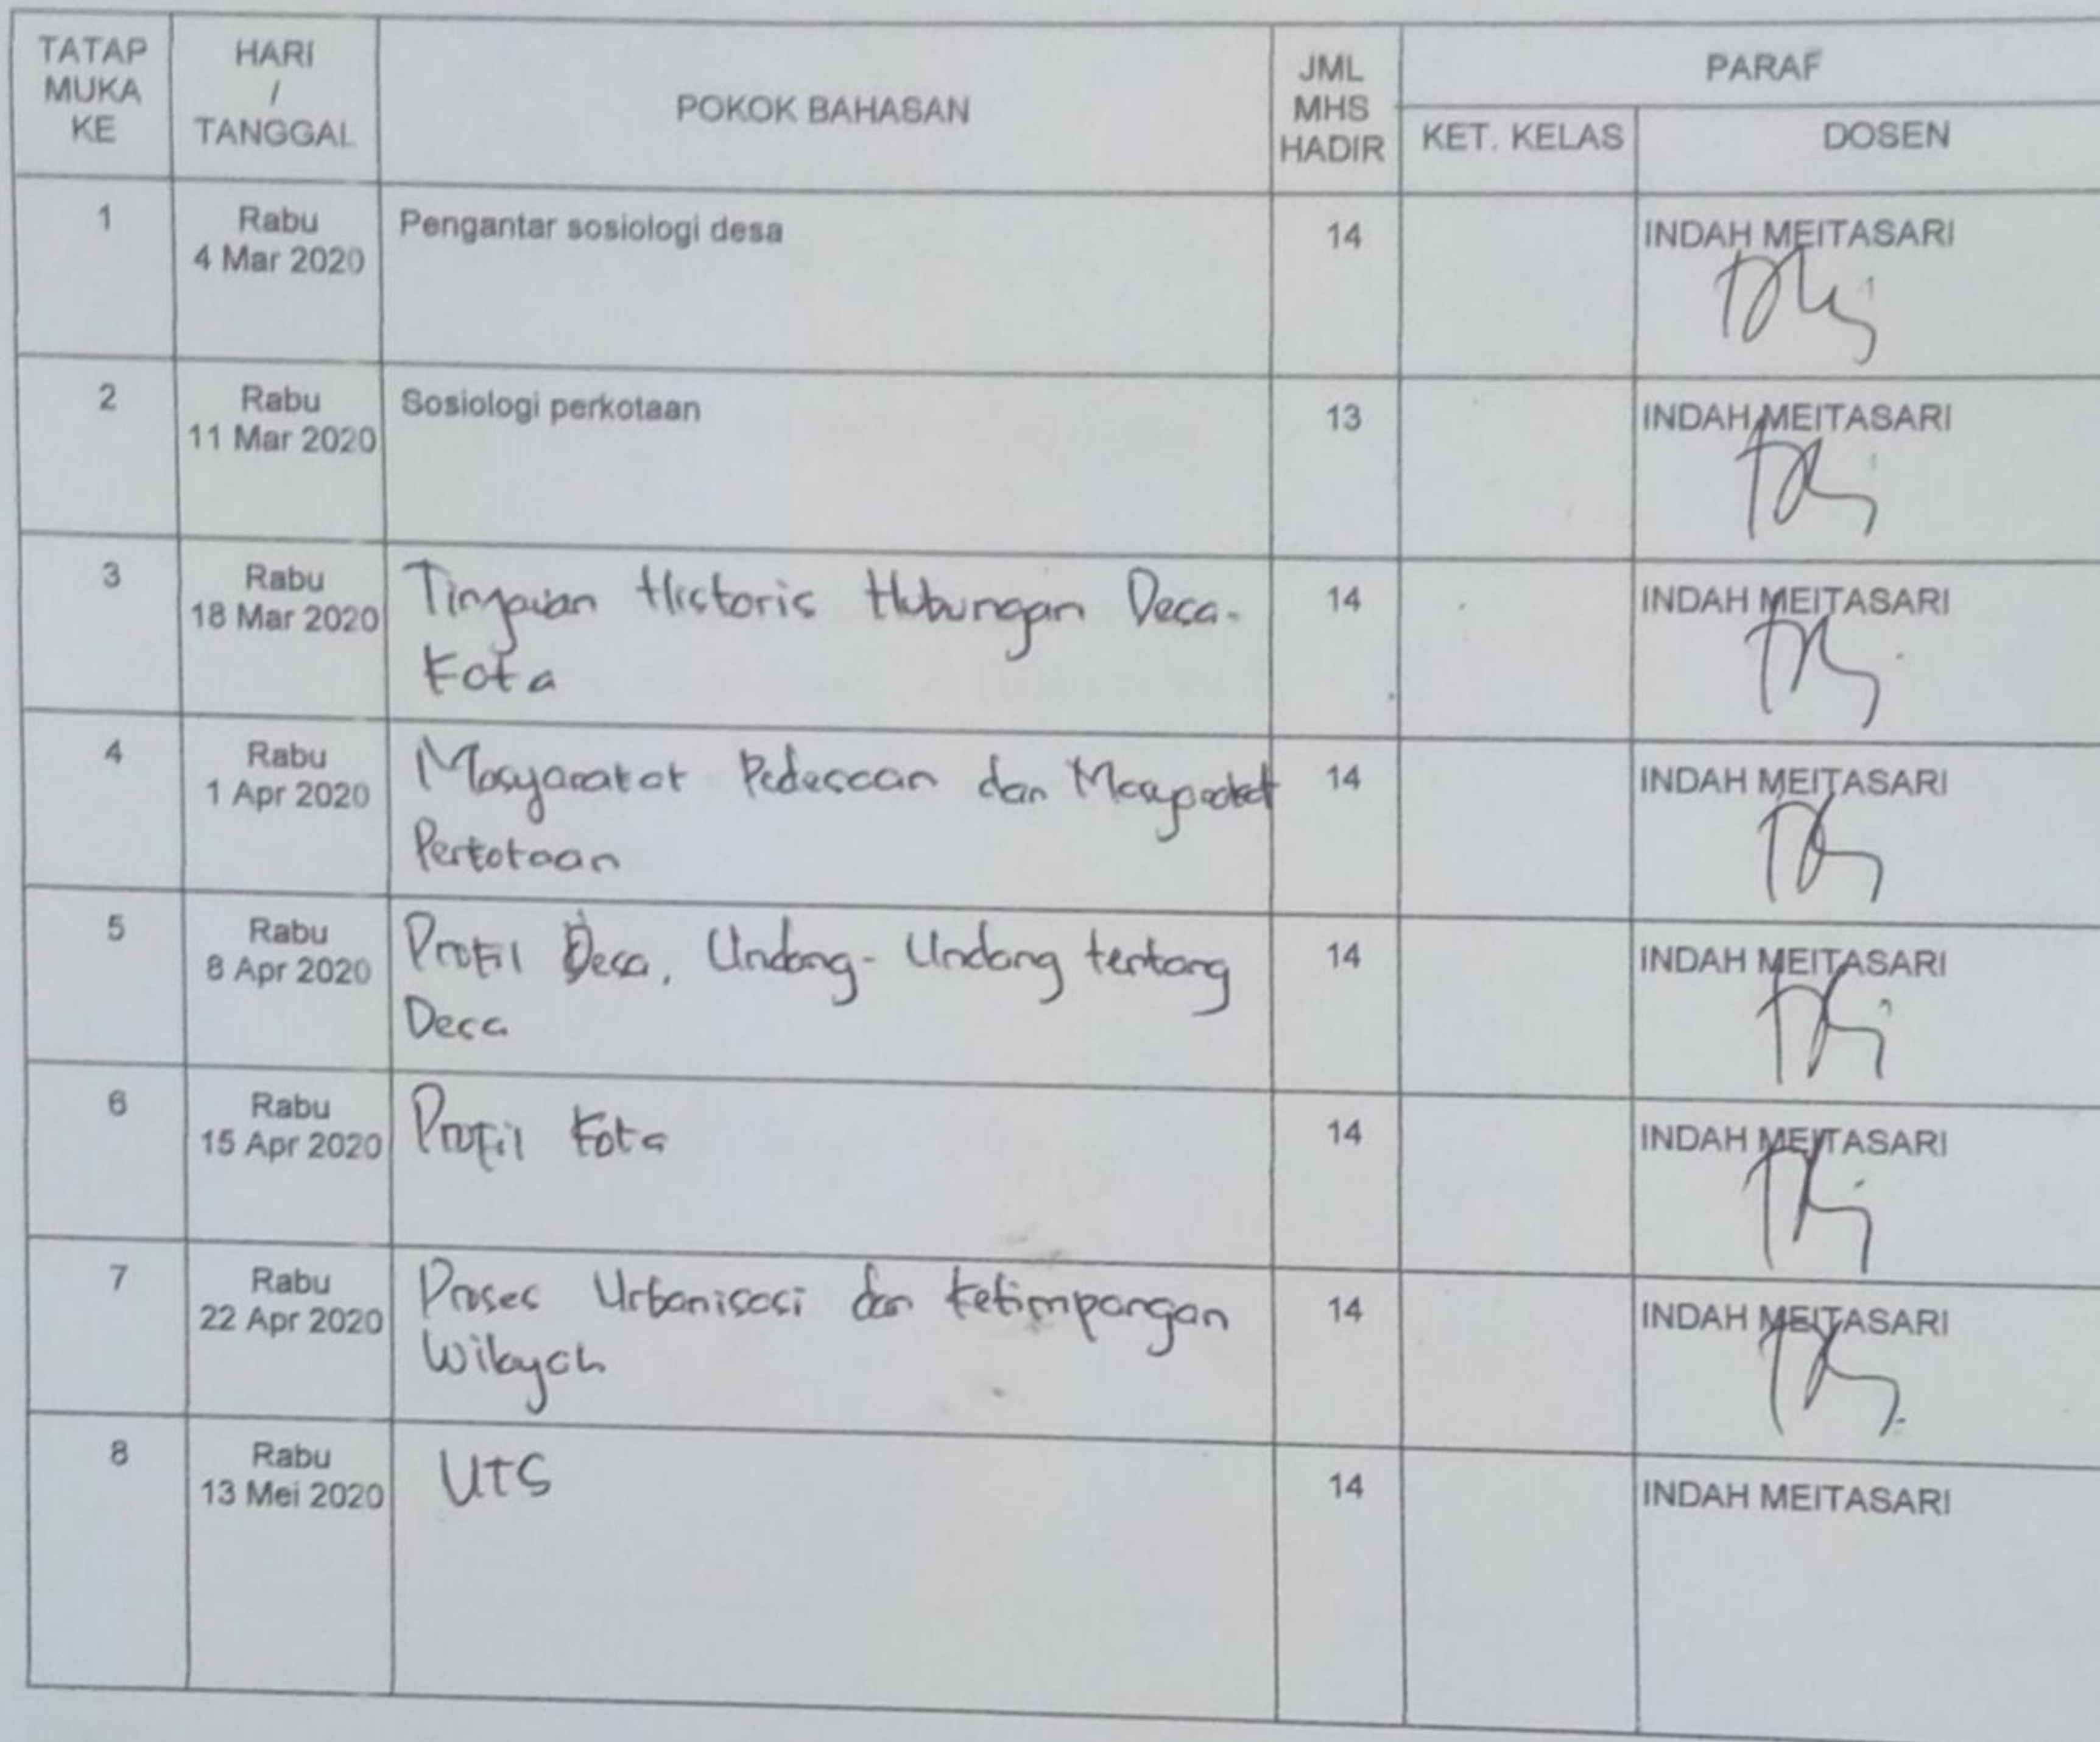 TATAP MUKA KE
HARI / TANGGAL
POKOK BAHASAN
JML MHS HADIR
PARAF
KET. KELAS
DOSEN
1
Rabu
4 Mar 2020
Pengantar sosiologi desa
14
INDAH MEITASARI
2
Rabu
11 Mar 2020
Sosiologi perkotaan
13
INDAH MEITASARI
3
Rabu
18 Mar 2020
Tinjauan Historis Hubungan Desa-
Kota
14
INDAH MEITASARI
4
Rabu
1 Apr 2020
Masyarakat Pedesaan dan Masyarakat
Perkotaan
14
INDAH MEITASARI
5
Rabu
8 Apr 2020
Profil Desa, Undang-Undang tentang
Desa
14
INDAH MEITASARI
6
Rabu
15 Apr 2020
Profil Kota
14
INDAH MEITASARI
7
Rabu
22 Apr 2020
Proses Urbanisasi dan Ketimpangan
Wilayah
14
INDAH MEITASARI
8
Rabu
13 Mei 2020
UTS
14
INDAH MEITASARI